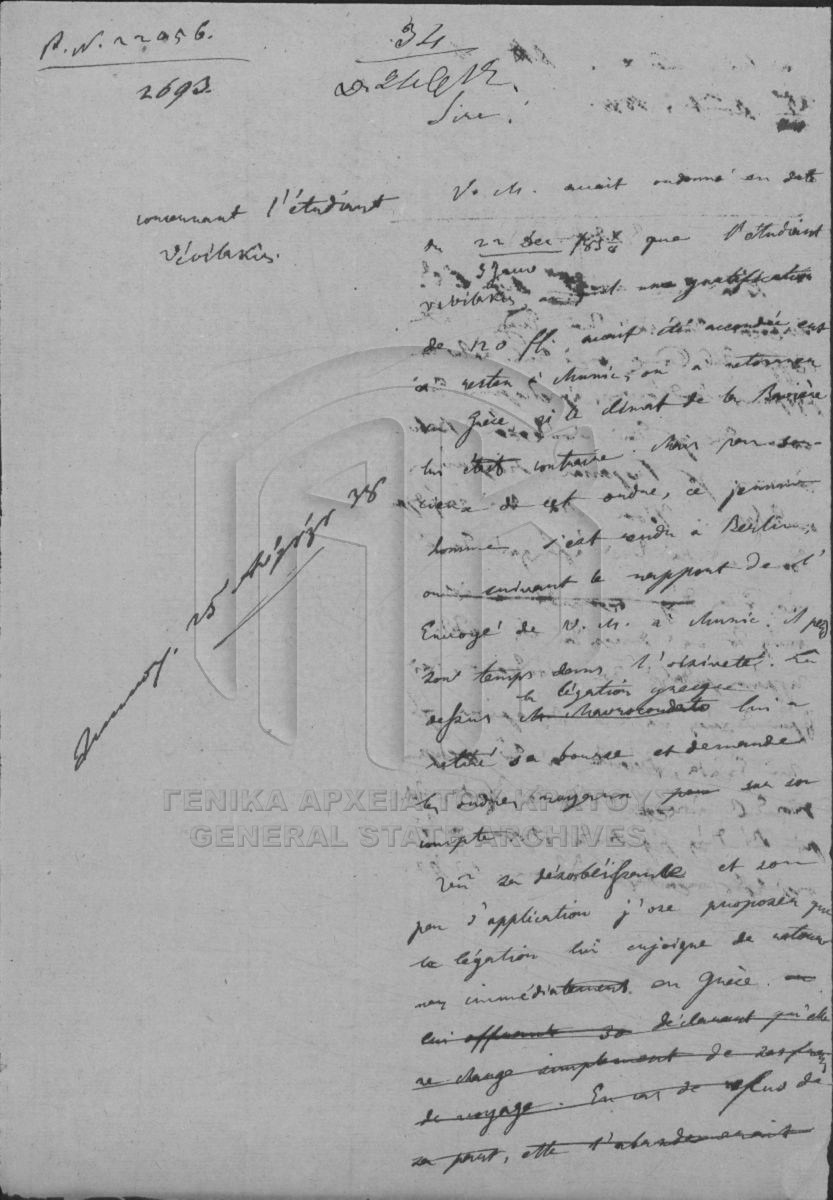 P. N. 22056.
2693.
34
Sire!
concernant l'étudiant
Vévilakis.
V. M. avait ordonné en date
du 22 Dec 183¾ que l'étudiant
3 Janv
Vévilakis, auquel une gratification
de 120 fl. avait été accordée, eut
à rester à Munic, ou à retourner
en Grèce, si le climat de la Bavière
lui était contraire. Mais peu sou-
cieux de cet ordre, ce jeune
homme s'est rendu à Berlin,
où suivant le rapport de l'
Envoyé de V. M. à Munic. Il perd
son temps dans l'oisiveté. La
la légation grecque
dessus Mr Mavrocordato lui a
retiré sa bourse et demande
les ordres pour sur son
compte.
Vu sa désobéissance et son
peu d'application j'ose proposer que
la légation lui enjoigne de retour
ner immédiatement en Grèce.
lui offrant déclarant qu'elle
se charge simplement de ses frais
de voyage. En cas de refus de
sa part, elle l'abandonnerait
ΓΕΝΙΚΑ ΑΡΧΕΙΑ ΤΟΥ ΚΡΑΤΟΥΣ
GENERAL STATE ARCHIVES